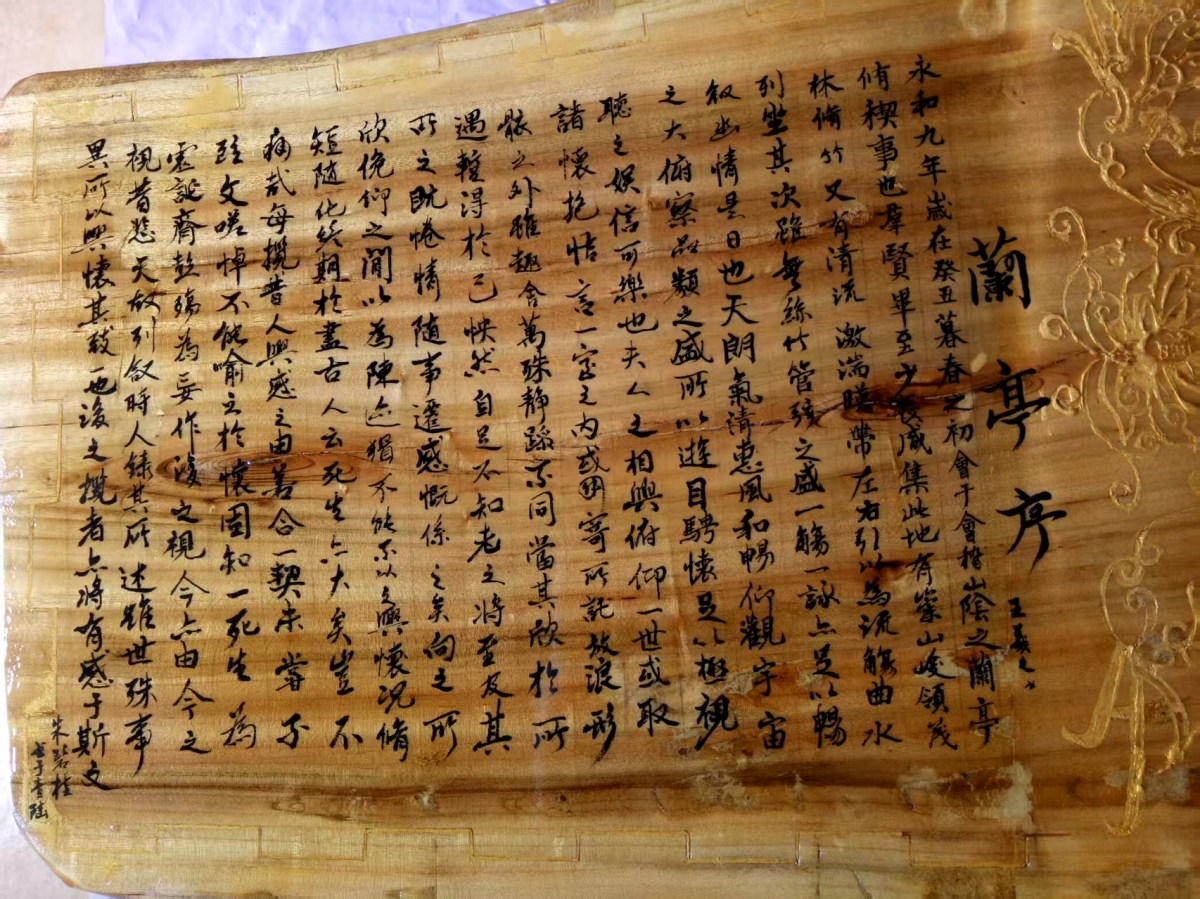 蘭亭序
王羲之
永和九年歲在癸丑暮春之初會于會稽山陰之蘭亭
脩稧事也羣賢畢至少長咸集此地有崇山峻領茂
林脩竹又有清流激湍暎帶左右引以為流觴曲水
列坐其次雖無絲竹管弦之盛一觴一詠亦足以暢
敘幽情是日也天朗氣清惠風和暢仰觀宇宙
之大俯察品類之盛所以遊目騁懷足以極視
聽之娛信可樂也夫人之相與俯仰一世或取
諸懷抱悟言一室之內或因寄所託放浪形
骸之外雖趣舍萬殊靜躁不同當其欣於所
遇暫得於己怏然自足不知老之將至及其
所之既惓情隨事遷感慨係之矣向之所
欣俛仰之間以為陳迹猶不能不以之興懷況脩
短隨化終期於盡古人云死生亦大矣豈不
痛哉每攬昔人興感之由若合一契未嘗不
臨文嗟悼不能喻之於懷固知一死生為
虛誕齊彭殤為妄作後之視今亦由今之
視昔悲夫故列敘時人錄其所述雖世殊事
異所以興懷其致一也後之攬者亦將有感于斯文